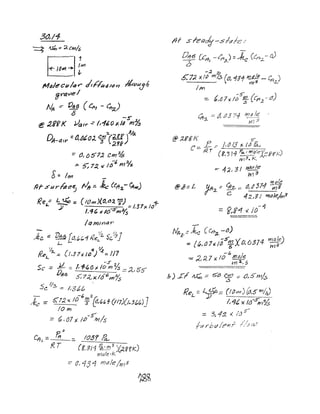 30.14
→ U∞ = 2 cm/s
10m
1m
Molecular diffusion through
gravel
NA = DAB/δ (CA1 - CA2)
@ 288K νair = 1.460 x 10⁻⁵ m²/s
DA-air = 0.0602 cm²/s (288/298)^3/2
= 0.0572 cm²/s
= 5.72 x 10⁻⁶ m²/s
δ = 1m
At surface, NA = k̄c (CA2 - CA∞)
ReL = L U∞/ν = (10m)(0.02 m/s)/1.46 x 10⁻⁵ m²/s = 1.37 x 10⁴
laminar
k̄c = DAB/L [0.664 ReL^1/2 Sc^1/3]
ReL^1/2 = (1.37x10⁴)^1/2 = 117
Sc = ν/DAB = 1.460 x 10⁻⁵ m²/s / 5.72 x 10⁻⁶ m²/s = 2.55
Sc^1/3 = 1.366
k̄c = 5.72 x 10⁻⁶ m²/s / 10 m [0.664 (117)(1.366)]
= 6.07 x 10⁻⁵ m/s
CA1 = PA°/RT = 1039 Pa / (8.314 Pa·m³/mole·K)(288K)
= 0.434 mole/m³
At steady-state:
DAB/δ (CA1 - CA2) = k̄c (CA2 - 0)
5.72 x 10⁻⁶ m²/s / 1m (0.434 mole/m³ - CA2)
= 6.07 x 10⁻⁵ m/s (CA2 - 0)
CA2 = 0.0374 mole/m³
@ 288K
C = P/RT = 1.013 x 10⁵ Pa / (8.314 Pa·m³/mole·K)(288K)
= 42.31 mole/m³
@ δ = L yA2 = CA2/C = 0.0374 mole/m³ / 42.31 mole/m³
= 8.84 x 10⁻⁴
NA2 = k̄c (CA2 - 0)
= (6.07 x 10⁻⁵ m/s)(0.0374 mole/m³)
= 2.27 x 10⁻⁶ mole/m²·s
b) If U∞ = 50 cm/s = 0.5 m/s
ReL = L U∞/ν = (10m)(0.5 m/s) / 1.46 x 10⁻⁵ m²/s
= 3.42 x 10⁵
turbulent flow